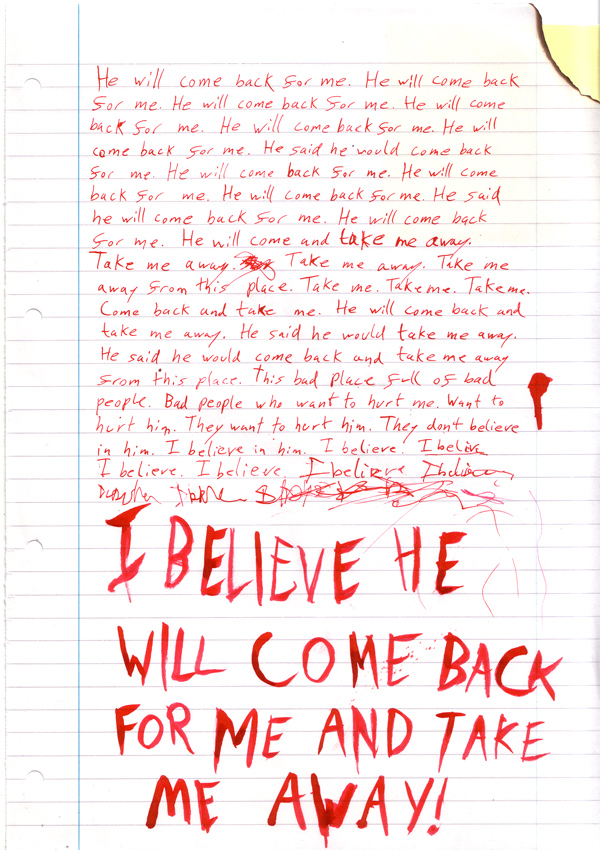 He will come back for me. He will come back
for me. He will come back for me. He will come
back for me. He will come back for me. He will
come back for me. He said he would come back
for me. He will come back for me. He will come
back for me. He will come back for me. He said
he will come back for me. He will come back
for me. He will come and take me away.
Take me away. Take me away. Take me
away from this place. Take me. Take me. Take me.
Come back and take me. He will come back and
take me away. He said he would take me away.
He said he would come back and take me away
from this place. This bad place full of bad
people. Bad people who want to hurt me. Want to
hurt him. They want to hurt him. They don't believe
in him. I believe in him. I believe. I believe
I believe. I believe. I believe I believe
I BELIEVE HE
WILL COME BACK
FOR ME AND TAKE
ME AWAY!